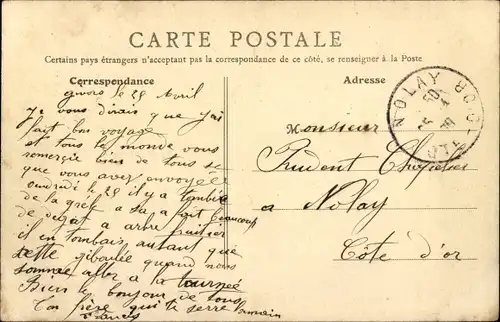 CARTE POSTALE
Certains pays étrangers n'acceptant pas la correspondance de ce côté, se renseigner à la Poste
Correspondance
Adresse
NOLAY
givors le 29 Avril
je vous dirais que j'ai
fait bon voyage
et tous le monde vous
remercie bien de tous se
que vous avez envoyée
vendredi le 29 il y a tombée
de la grele a sa fait beaucoup
de degat a arbre fruitier
il en tombais autant que
sette giboulée quand nous
somme aller a la tournée
Bien le bonjour de tous
Ton frère qui te serre la main
Monsieur
Prudent
a Nolay
Côte d'or